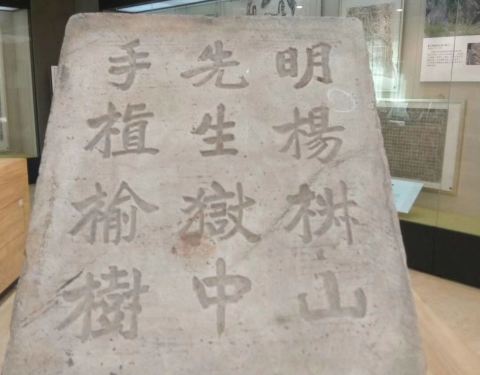 明楊椒山
先生獄中
手植榆樹